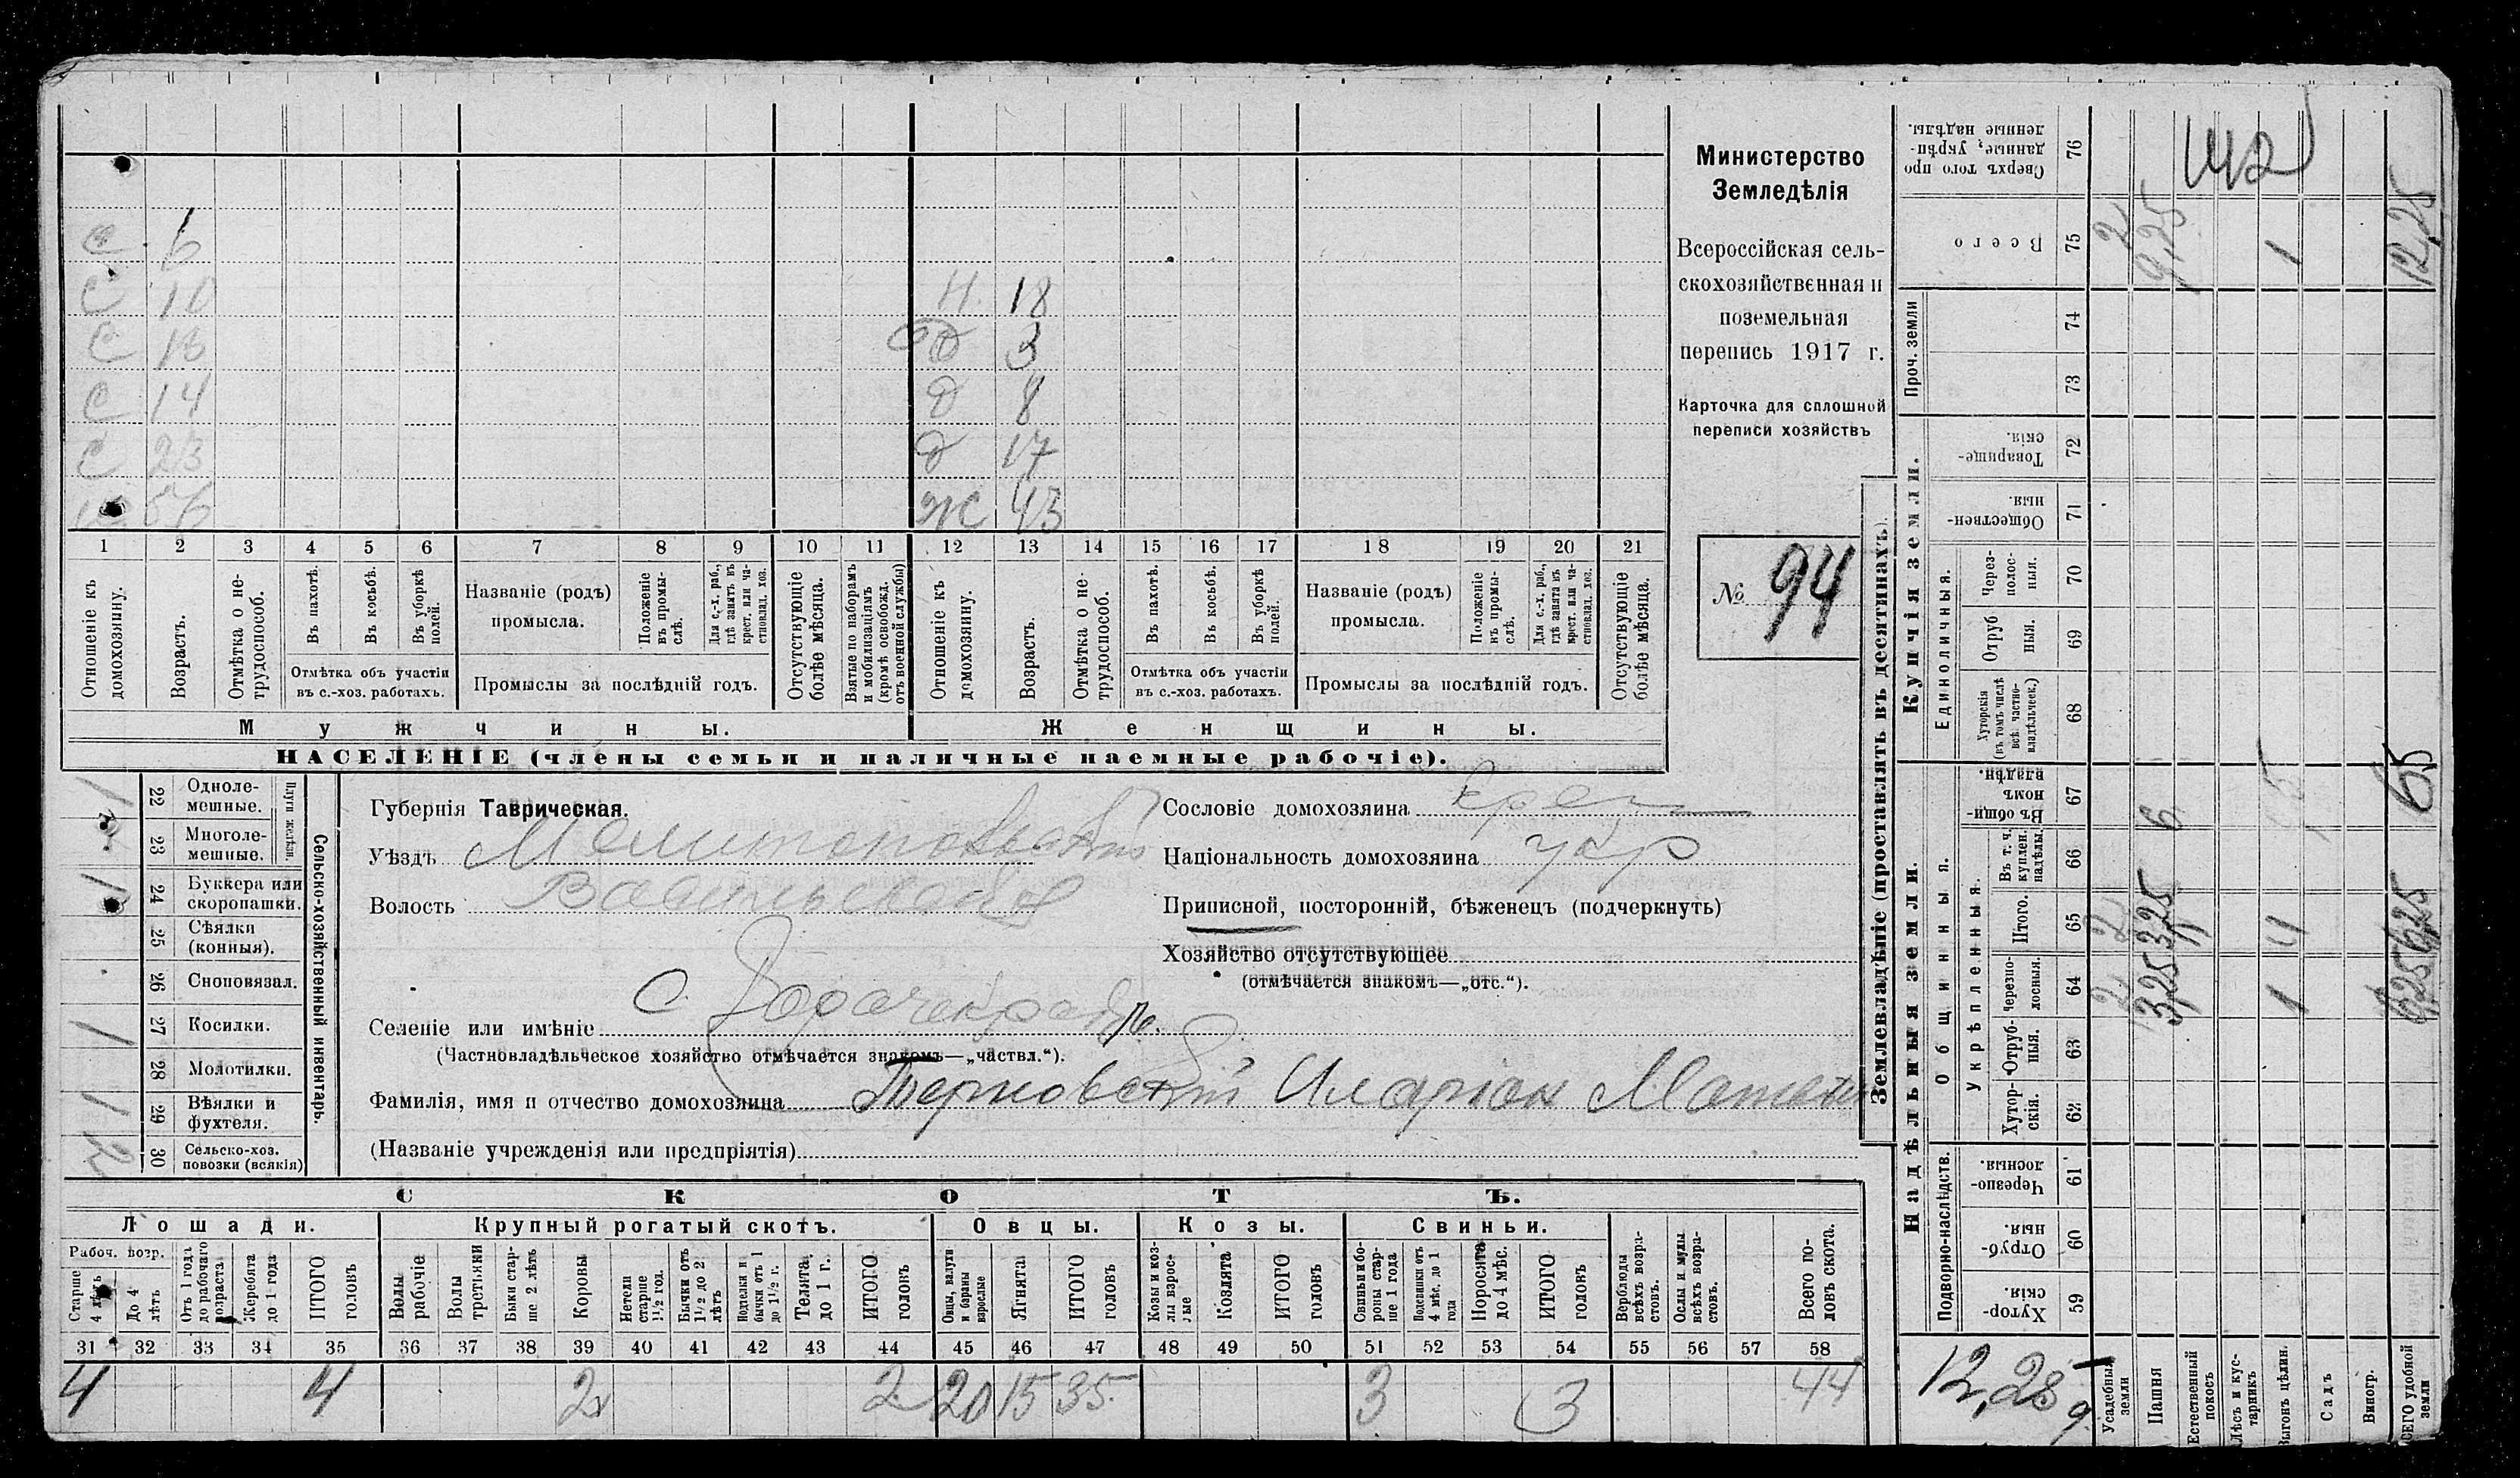 Министерство
Земледѣлія
Всероссійская сель-
скохозяйственная и
поземельная
перепись 1917 г.
Карточка для сплошной
переписи хозяйствъ
№ 94
с 6
с 10
с 13
с 14
с 23
56
Н. 18
д 3
д 8
д 17
ж 43
1 2 3 4 5 6 7 8 9 10 11 12 13 14 15 16 17 18 19 20 21
Отношеніе къ домохозяину.
Возрастъ.
Отмѣтка о не-трудоспособ.
Въ пахотѣ.
Въ косьбѣ.
Въ уборкѣ полей.
Отмѣтка объ участіи
въ с.-хоз. работахъ.
Названіе (родъ)
промысла.
Положеніе въ промы-слѣ.
Для с.-х. раб., гдѣ занятъ въ крест. или ча-стновлад. хоз.
Промыслы за послѣдній годъ.
Отсутствующіе болѣе мѣсяца.
Взятые по наборамъ и мобилизаціямъ (кромѣ освобожд. отъ военной службы)
Отношеніе къ домохозяину.
Возрастъ.
Отмѣтка о не-трудоспособ.
Въ пахотѣ.
Въ косьбѣ.
Въ уборкѣ полей.
Отмѣтка объ участіи
въ с.-хоз. работахъ.
Названіе (родъ)
промысла.
Положеніе въ промы-слѣ.
Для с.-х. раб., гдѣ занята въ крест. или ча-стновлад. хоз.
Промыслы за послѣдній годъ.
Отсутствующіе болѣе мѣсяца.
Мужчины.
Женщины.
НАСЕЛЕНІЕ (члены семьи и наличные наемные рабочіе).
Сельско-хозяйственный инвентарь.
Плуги желѣзн.
1 22 Одноле-мешные.
23 Многоле-мешные.
1 24 Буккера или скоропашки.
25 Сѣялки (конныя).
26 Сноповязал.
1 27 Косилки.
28 Молотилки.
1 29 Вѣялки и фухтеля.
30 Сельско-хоз. повозки (всякія)
Губернія Таврическая.
Уѣздъ Мелитопольскій
Волость
Селеніе или имѣніе с.
(Частновладѣльческое хозяйство отмѣчается знакомъ—„частвл.“).
Фамилія, имя и отчество домохозяина Терновскій Иларіон
(Названіе учрежденія или предпріятія)
Сословіе домохозяина крест
Національность домохозяина укр
Приписной, посторонній, бѣженецъ (подчеркнуть)
Хозяйство отсутствующее
(отмѣчается знакомъ—„отс.“).
СКОТЪ.
Лошади. Крупный рогатый скотъ. Овцы. Козы. Свиньи.
Рабоч. возр.
Старше 4 лѣтъ
До 4 лѣтъ
Отъ 1 года до рабочаго возраста
Жеребята до 1 года
ИТОГО головъ
Волы рабочіе
Волы третьяки
Быки стар-ше 2 лѣтъ
Коровы
Нетели старше 1½ год.
Бычки отъ 1½ до 2 лѣтъ
Подтелки и бычки отъ 1 до 1½ г.
Телята до 1 г.
ИТОГО головъ
Овцы, валухи и бараны взрослые
Ягнята
ИТОГО головъ
Козы и коз-лы взрос-лые
Козлята
ИТОГО головъ
Свиньи и бо-ровы стар-ше 1 года
Подсвинки отъ 4 мѣс. до 1 года
Поросята до 4 мѣс.
ИТОГО головъ
Верблюды всѣхъ возра-стовъ.
Ослы и мулы всѣхъ возра-стовъ.
Всего го-ловъ скота.
31 32 33 34 35 36 37 38 39 40 41 42 43 44 45 46 47 48 49 50 51 52 53 54 55 56 57 58
4 4 2 2 20 15 35 3 3 44
Землевладѣніе (проставлять въ десятинахъ).
Сверхъ того про-данные, укрѣп-ленные надѣлы. 76
Всего 75 2 9,25 1 12,25
Проч. земли 74
73
Купчія земли.
Товарище-скія. 72
Обществен-ныя. 71
Единоличныя.
Через-полос-ныя. 70
Отруб-ныя. 69
Хуторскія (въ томъ числѣ всѣ частно-владѣльчес.) 68
Надѣльныя земли.
Общинныя.
Въ общи-номъ владѣн. 67 6
Укрѣпленныя.
Въ т. ч. куплен. надѣлы. 66
Итого. 65 2 3,25 6,25
Черезпо-лосныя. 64 2 3,25 1 6,25
Отруб-ныя. 63
Хутор-скія. 62
Подворно-наслѣдств.
Черезпо-лосныя. 61
Отруб-ныя. 60
Хутор-скія. 59
Усадебныя земли
Пашня
Естественный покосъ
Лѣсъ и кус-тарникъ
Выгонъ цѣлин.
Садъ
Виногр.
ВСЕГО удобной земли